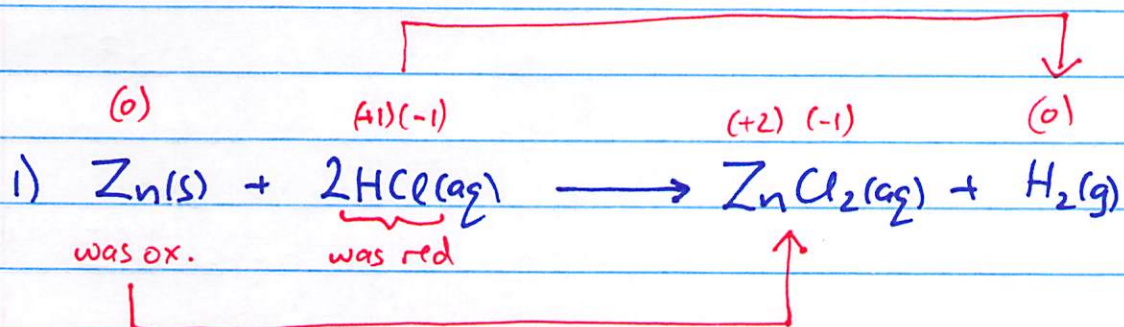 (0) (+1)(-1) (+2) (-1) (0)
1) Zn(s) + 2HCl(aq) ⟶ ZnCl₂(aq) + H₂(g)
was ox. was red